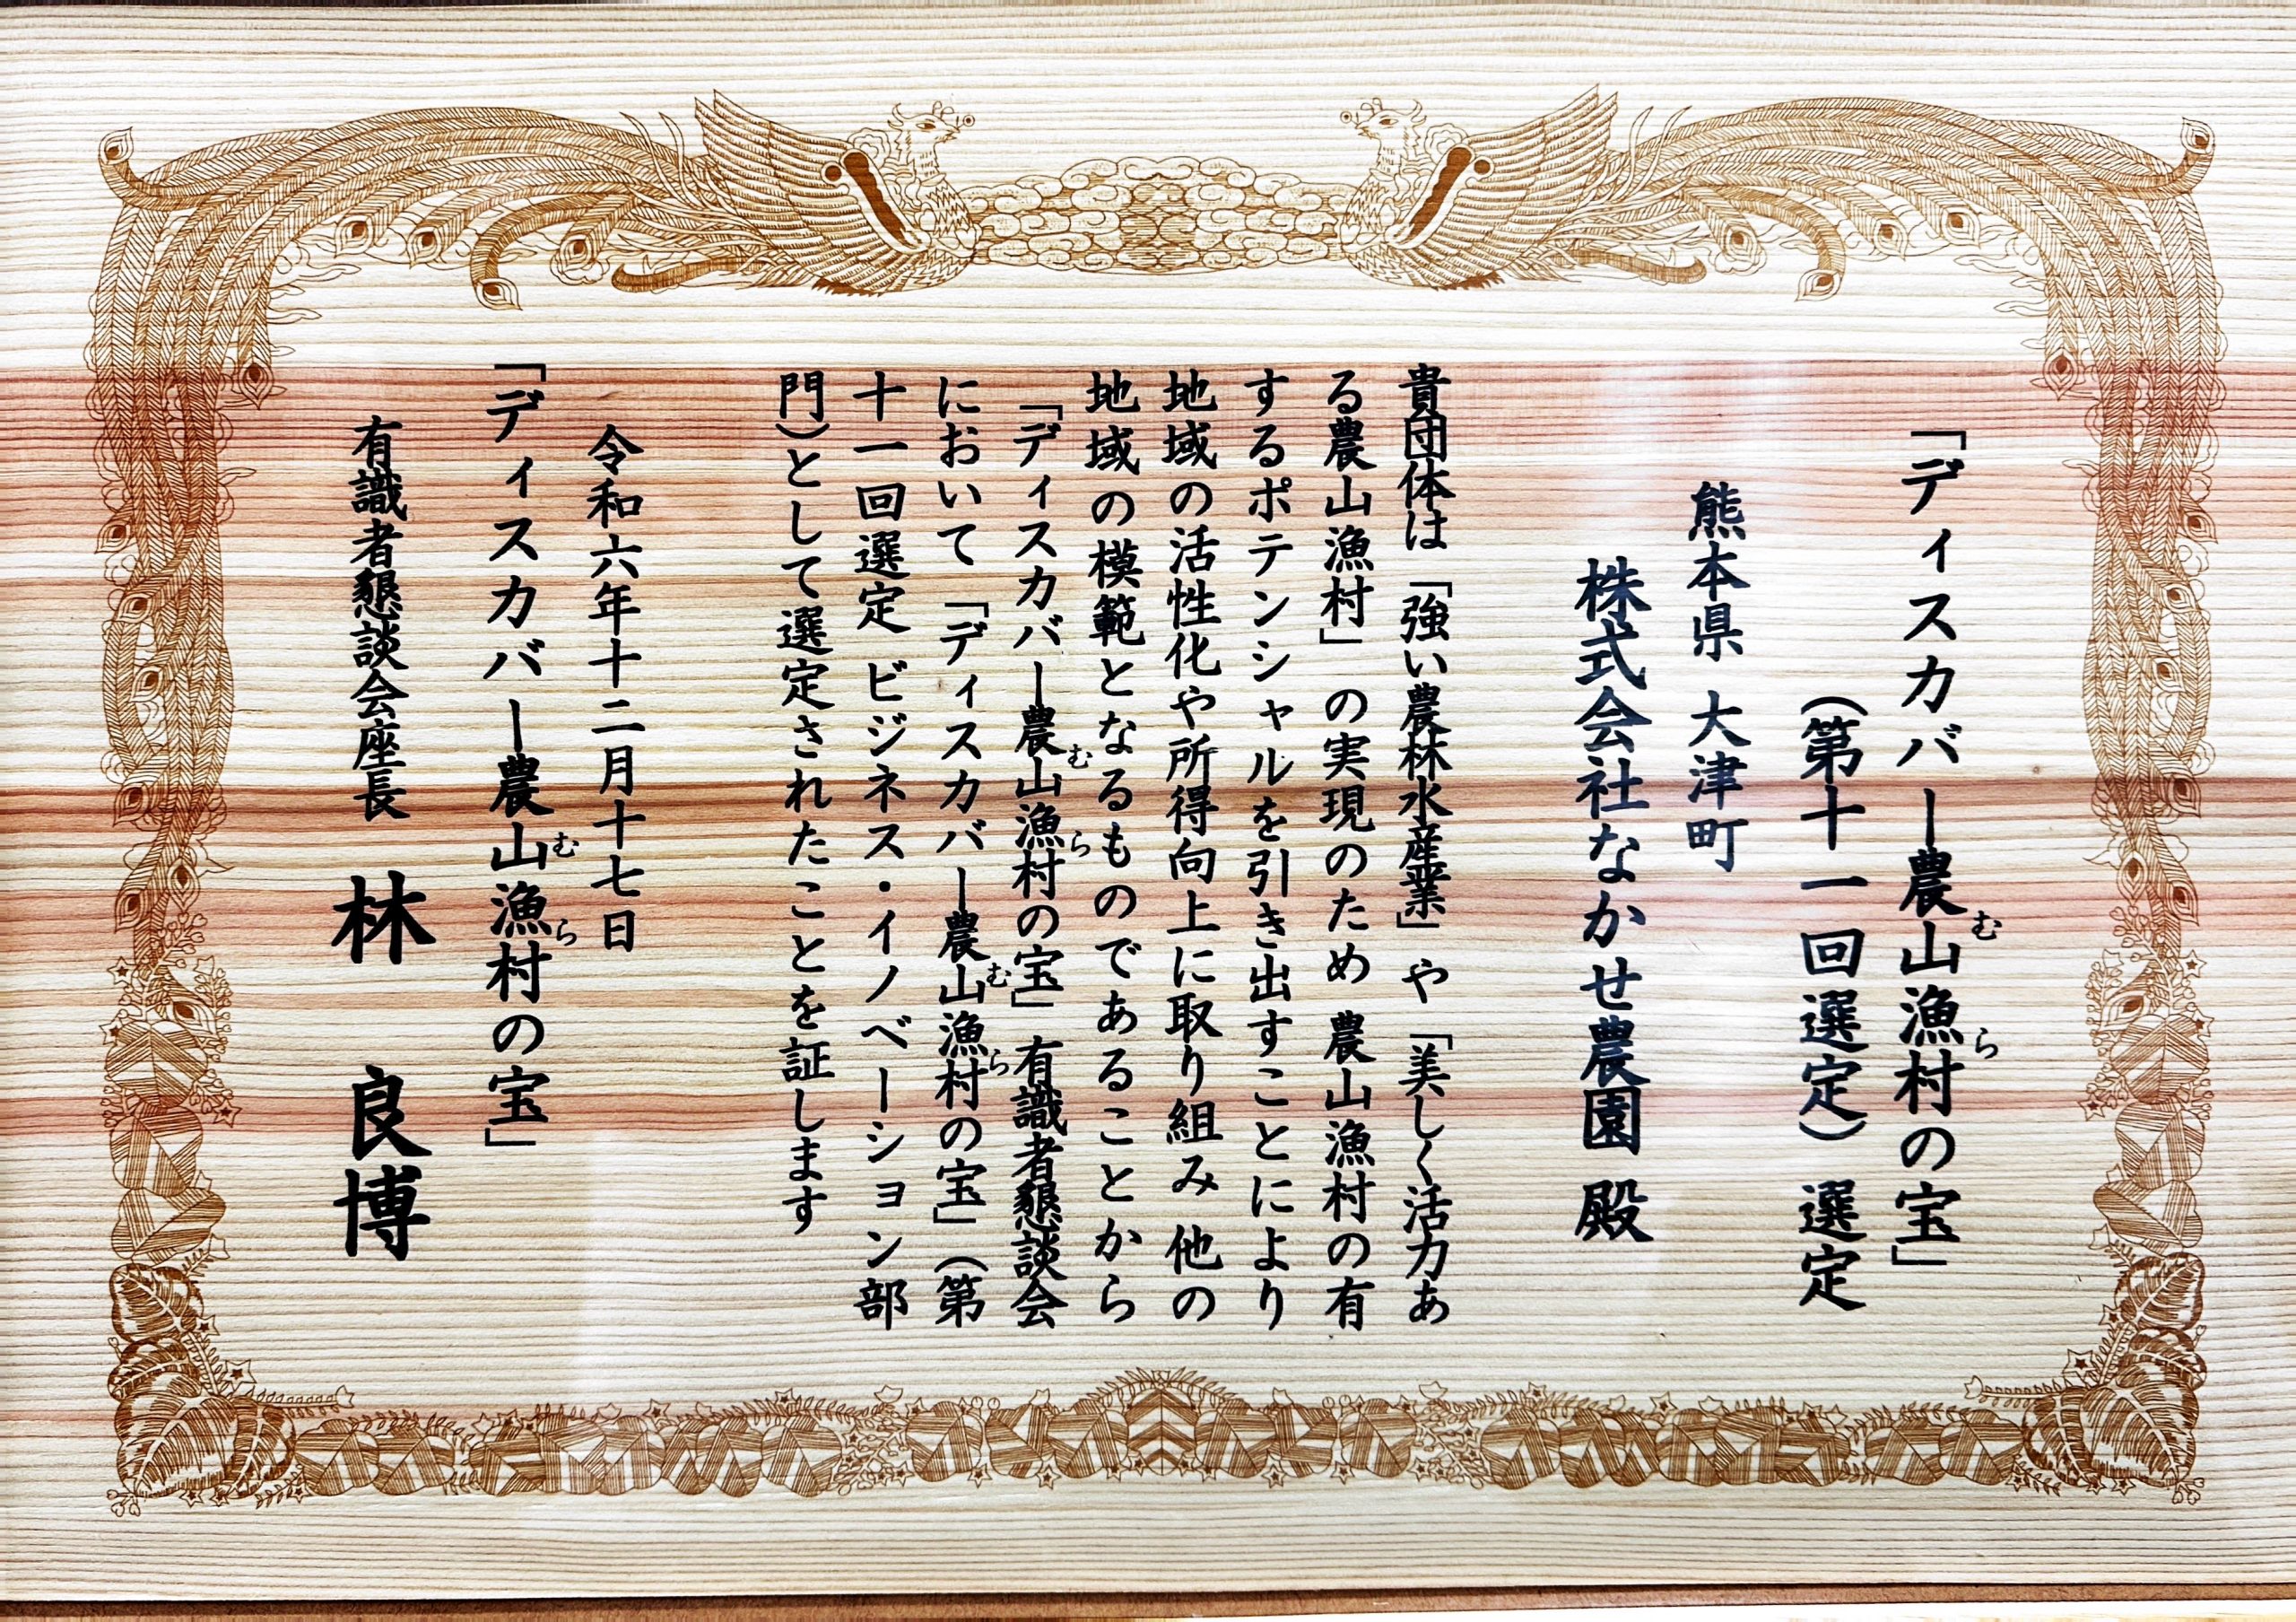 「ディスカバー農山漁村の宝」
むら
(第十一回選定)選定
熊本県 大津町
株式会社なかせ農園 殿
貴団体は「強い農林水産業」や「美しく活力あ
る農山漁村」の実現のため 農山漁村の有
するポテンシャルを引き出すことにより
地域の活性化や所得向上に取り組み 他の
地域の模範となるものであることから
「ディスカバー農山漁村の宝」有識者懇談会
むら
において「ディスカバー農山漁村の宝」(第
むら
十一回選定 ビジネス・イノベーション部
門)として選定されたことを証します
令和六年十二月十七日
「ディスカバー農山漁村の宝」
むら
有識者懇談会座長 林 良博